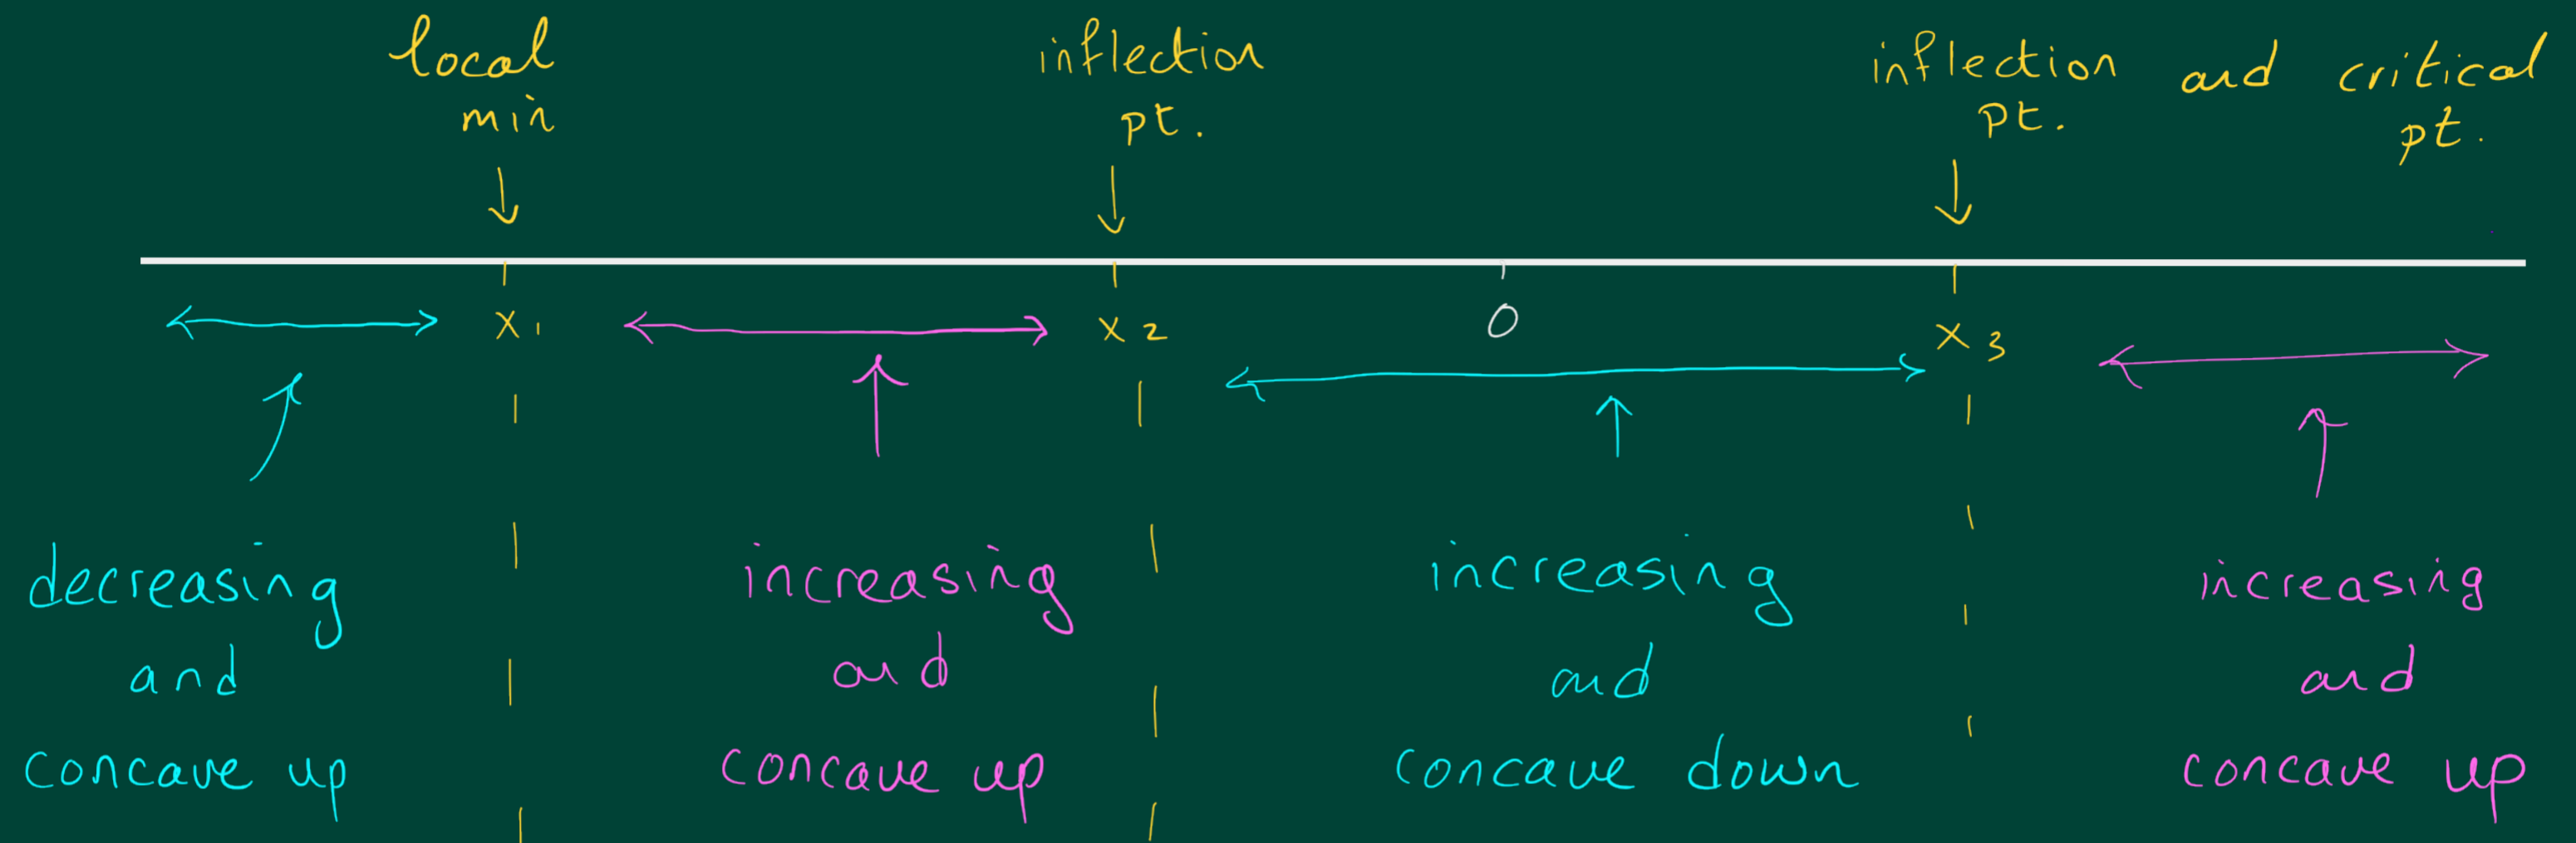 local
min
inflection
pt.
inflection and critical
pt. pt.
x1 x2 0 x3
decreasing
and
concave up
increasing
and
concave up
increasing
and
concave down
increasing
and
concave up